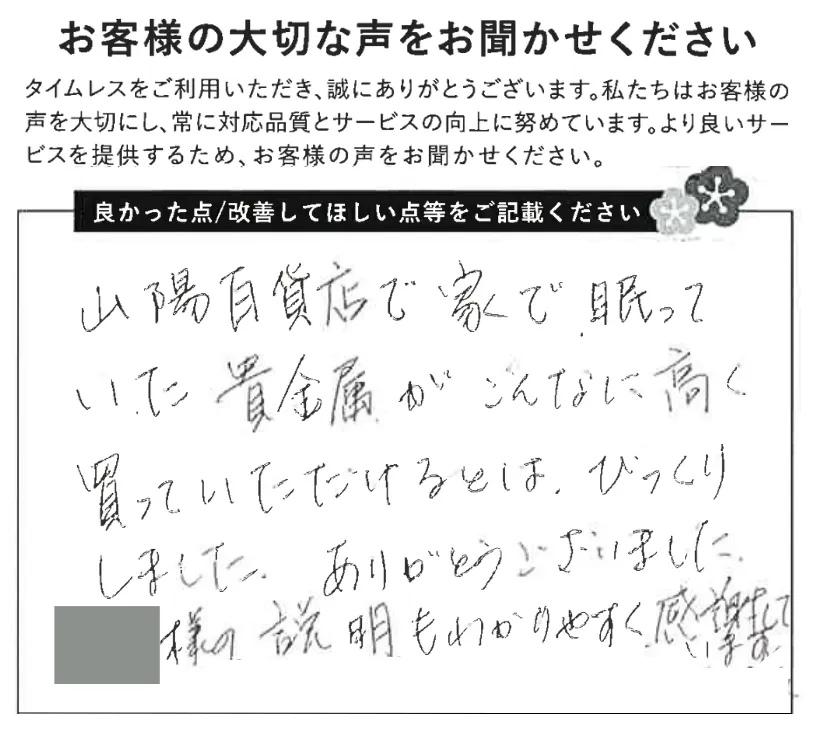 お客様の大切な声をお聞かせください
タイムレスをご利用いただき、誠にありがとうございます。私たちはお客様の
声を大切にし、常に対応品質とサービスの向上に努めています。より良いサー
ビスを提供するため、お客様の声をお聞かせください。
良かった点/改善してほしい点等をご記載ください
山陽百貨店で家で眠って
いた貴金属がこんなに高く
買っていただけるとは、びっくり
しました。ありがとうございました。
様の説明もわかりやすく感謝して
います